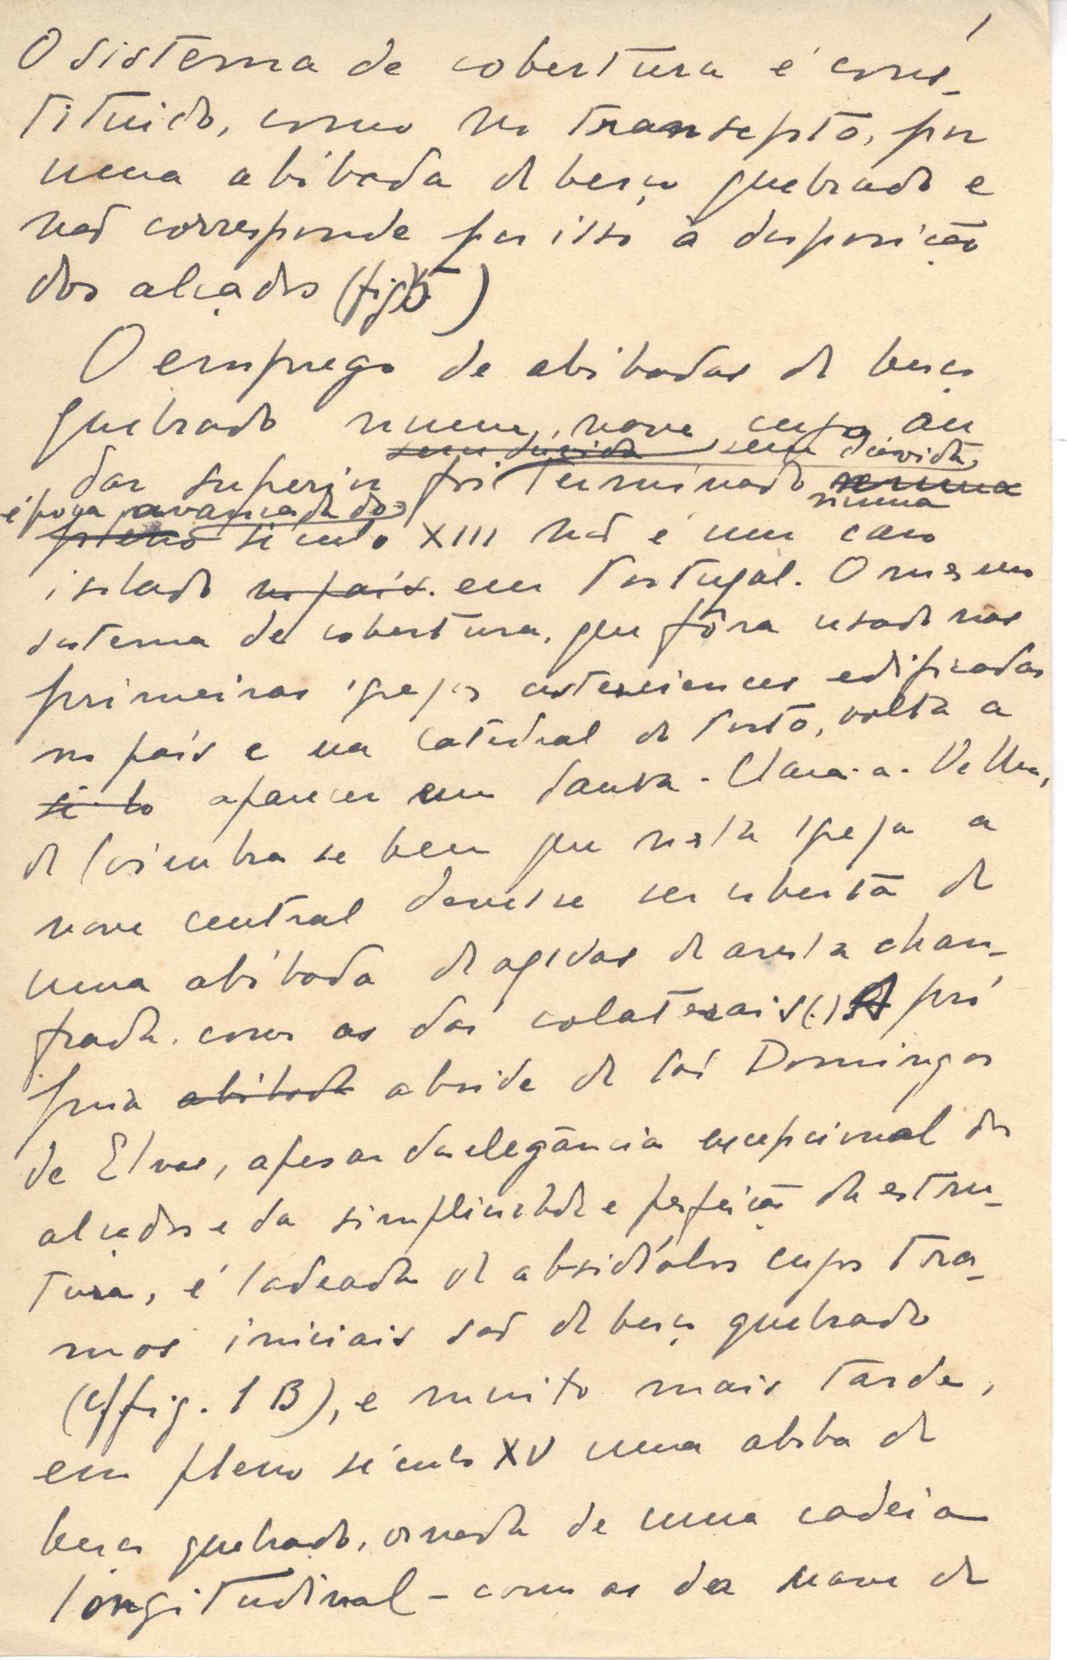 1
O sistema de cobertura é cons-
tituido, como no transepto, por
uma abóbada de berço quebrado e
não corresponde por isso à disposição
dos alçados (fig. )
O emprego de abóbadas de berço
quebrado numa nave cujo an
sem dúvida sem dúvida,
dar superior foi terminado numa
numa
época avançada do
pleno século XIII não é um caso
isolado no país. em Portugal. O mesmo
sistema de cobertura, que fôra usado nas
primeiras igrejas cistercienses edificadas
no país e na Catedral do Porto, volta a
aparecer em Santa-Clara-a-Velha,
de Coimbra se bem que nesta igreja a
nave central devesse ser coberta de
uma abóbada de ogivas de aresta chan-
frada, como as das colaterais(.) A pró
pria abóbada abside de São Domingos
de Elvas, apesar da elegância excepcional dos
alçados e da simplicidade e perfeição da estru-
tura, é ladeada de absidíolos cujos tra-
mos iniciais são de berço quebrado
(cf fig. 1 B), e muito mais tarde,
em pleno século XV uma aboba de
berço quebrado, ornada de uma cadeia
longitudinal - como as da nave de